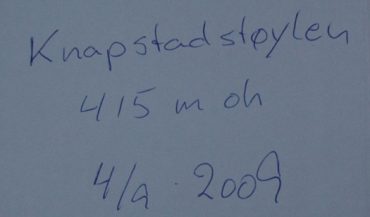 Knapstadstøylen
415 m oh
4/9 · 2009